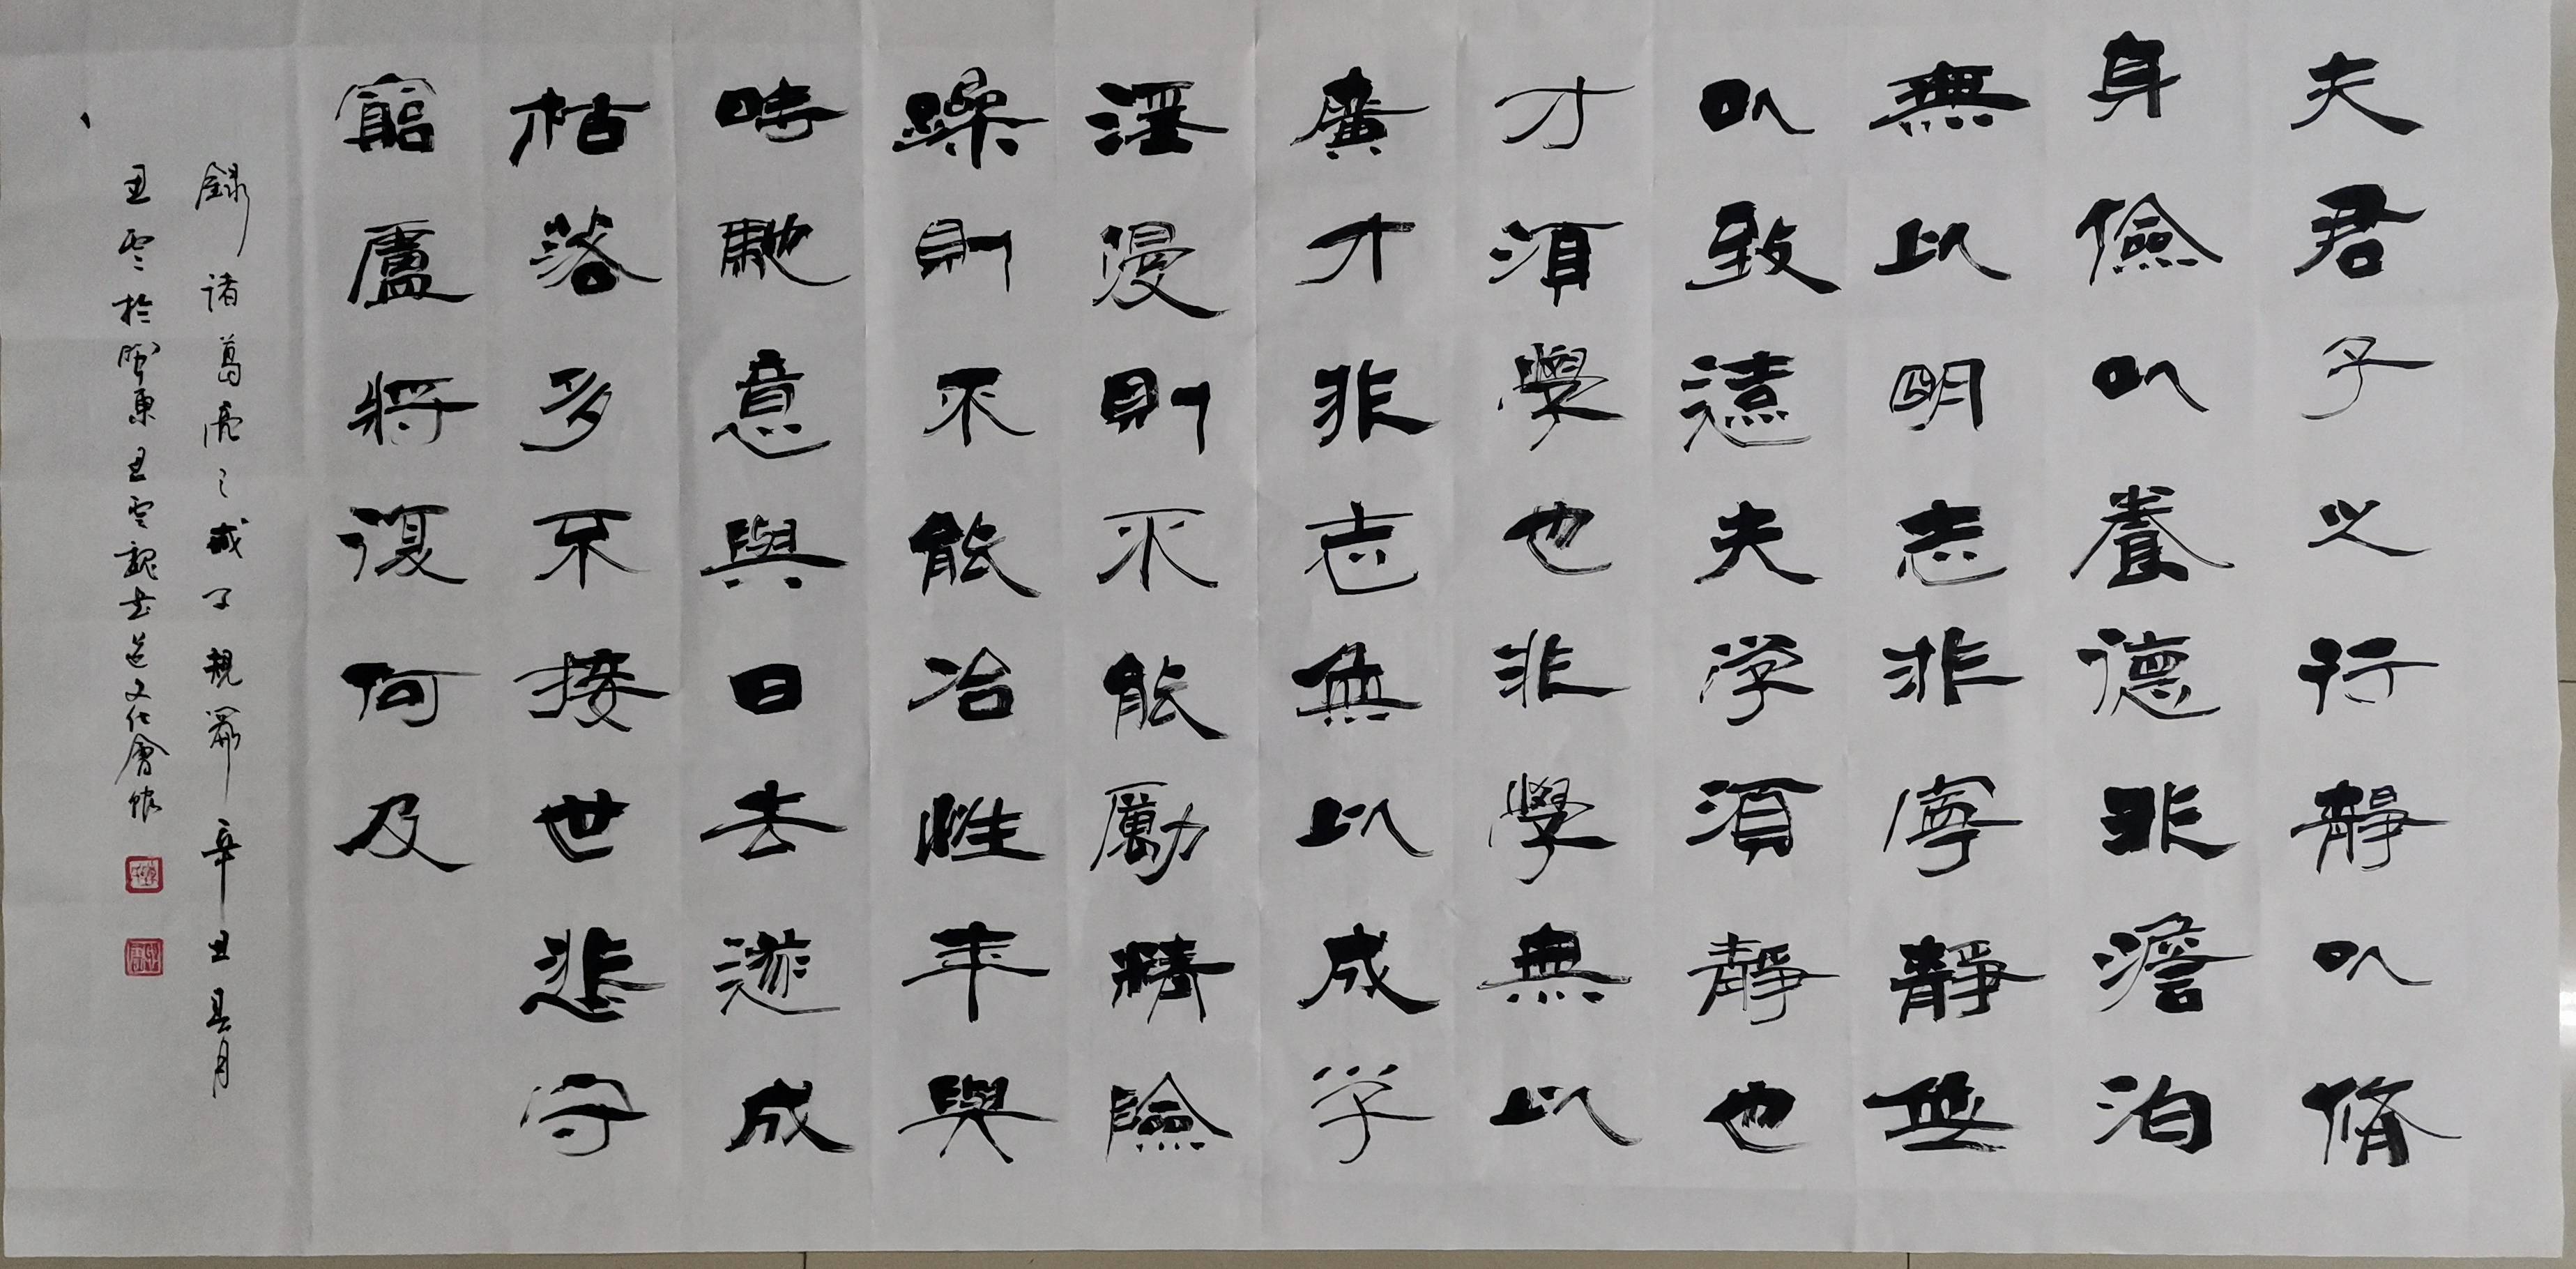 夫君子之行静以脩
身儉以養德非澹泊
無以明志非寧静無
以致遠夫学須静也
才須學也非學無以
廣才非志無以成学
淫漫則不能勵精險
躁則不能冶性年與
時馳意與日去遂成
枯落多不接世悲守
窮廬將復何及
錄诸葛亮之誡子親 辛丑 月
丑雲於 東丑雲 書道文化會館